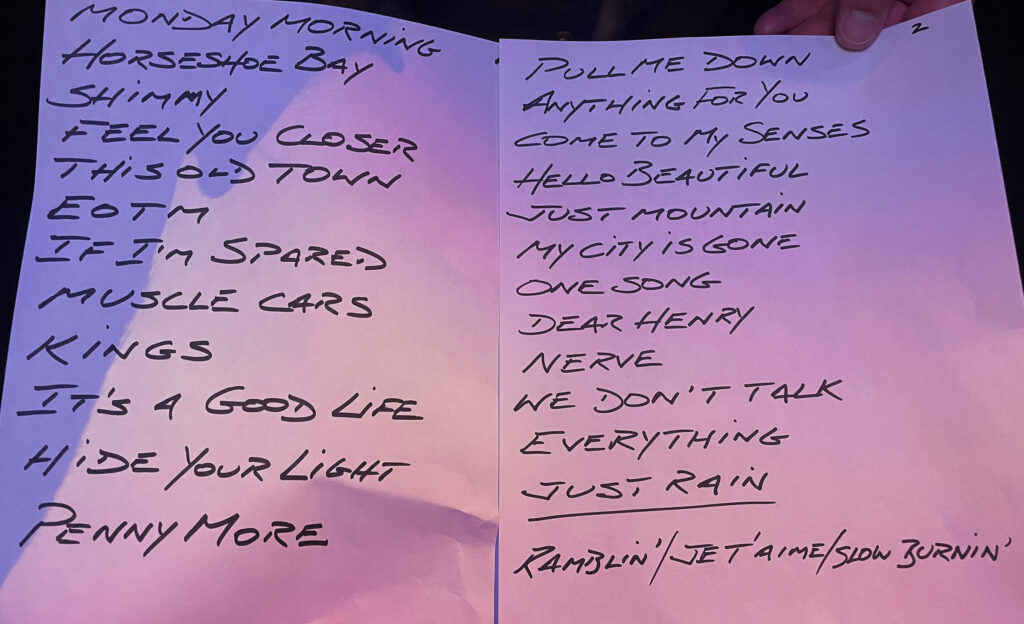 MONDAY MORNING
HORSESHOE BAY
SHIMMY
FEEL YOU CLOSER
THIS OLD TOWN
EOTM
IF I'M SPARED
MUSCLE CARS
KINGS
IT'S A GOOD LIFE
HIDE YOUR LIGHT
PENNY MORE
2
PULL ME DOWN
ANYTHING FOR YOU
COME TO MY SENSES
HELLO BEAUTIFUL
JUST MOUNTAIN
MY CITY IS GONE
ONE SONG
DEAR HENRY
NERVE
WE DON'T TALK
EVERYTHING
JUST RAIN
RAMBLIN'/JE T'AIME/SLOW BURNIN'